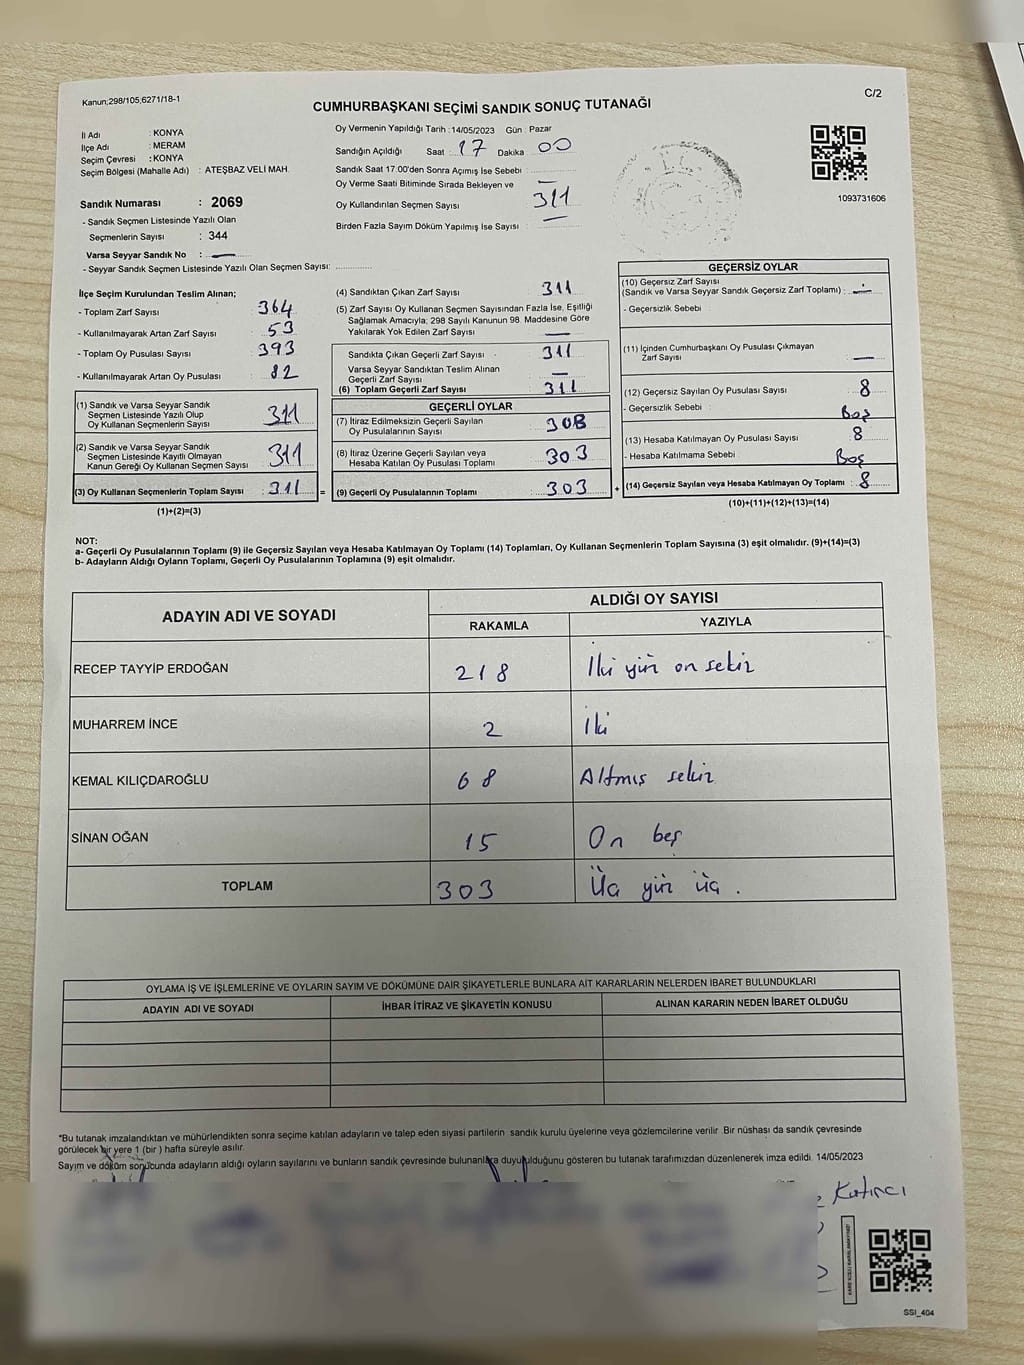 Kanun;298/105,6271/18-1
C/2
CUMHURBAŞKANI SEÇİMİ SANDIK SONUÇ TUTANAĞI
İl Adı : KONYA
İlçe Adı : MERAM
Seçim Çevresi : KONYA
Seçim Bölgesi (Mahalle Adı) : ATEŞBAZ VELİ MAH.
Sandık Numarası : 2069
- Sandık Seçmen Listesinde Yazılı Olan
Seçmenlerin Sayısı : 344
Varsa Seyyar Sandık No : —
- Seyyar Sandık Seçmen Listesinde Yazılı Olan Seçmen Sayısı: ............
Oy Vermenin Yapıldığı Tarih : 14/05/2023 Gün : Pazar
Sandığın Açıldığı Saat : 17 Dakika 00
Sandık Saat 17:00'den Sonra Açımış İse Sebebi :
Oy Verme Saati Bitiminde Sırada Bekleyen ve —
Oy Kullandırılan Seçmen Sayısı 311
Birden Fazla Sayım Döküm Yapılmış İse Sayısı : —
1093731606
İlçe Seçim Kurulundan Teslim Alınan;
- Toplam Zarf Sayısı : 364
- Kullanılmayarak Artan Zarf Sayısı : 53
- Toplam Oy Pusulası Sayısı : 393
- Kullanılmayarak Artan Oy Pusulası : 82
(1) Sandık ve Varsa Seyyar Sandık
Seçmen Listesinde Yazılı Olup
Oy Kullanan Seçmenlerin Sayısı : 311
(2) Sandık ve Varsa Seyyar Sandık
Seçmen Listesinde Kayıtlı Olmayan
Kanun Gereği Oy Kullanan Seçmen Sayısı : 311
(3) Oy Kullanan Seçmenlerin Toplam Sayısı : 311
(1)+(2)=(3)
(4) Sandıktan Çıkan Zarf Sayısı : 311
(5) Zarf Sayısı Oy Kullanan Seçmen Sayısından Fazla İse, Eşitliği
Sağlamak Amacıyla; 298 Sayılı Kanunun 98. Maddesine Göre
Yakılarak Yok Edilen Zarf Sayısı : —
Sandıkta Çıkan Geçerli Zarf Sayısı : 311
Varsa Seyyar Sandıktan Teslim Alınan
Geçerli Zarf Sayısı : —
(6) Toplam Geçerli Zarf Sayısı : 311
GEÇERLİ OYLAR
(7) İtiraz Edilmeksizin Geçerli Sayılan
Oy Pusulalarının Sayısı :
(8) İtiraz Üzerine Geçerli Sayılan veya
Hesaba Katılan Oy Pusulası Toplamı : 303
= (9) Geçerli Oy Pusulalarının Toplamı : 303
GEÇERSİZ OYLAR
(10) Geçersiz Zarf Sayısı
(Sandık ve Varsa Seyyar Sandık Geçersiz Zarf Toplamı) : —
- Geçersizlik Sebebi :
(11) İçinden Cumhurbaşkanı Oy Pusulası Çıkmayan
Zarf Sayısı : —
(12) Geçersiz Sayılan Oy Pusulası Sayısı : 8
- Geçersizlik Sebebi : Boş
(13) Hesaba Katılmayan Oy Pusulası Sayısı : 8
- Hesaba Katılmama Sebebi : Boş
+ (14) Geçersiz Sayılan veya Hesaba Katılmayan Oy Toplamı : 8
(10)+(11)+(12)+(13)=(14)
NOT:
a- Geçerli Oy Pusulalarının Toplamı (9) ile Geçersiz Sayılan veya Hesaba Katılmayan Oy Toplamı (14) Toplamları, Oy Kullanan Seçmenlerin Toplam Sayısına (3) eşit olmalıdır. (9)+(14)=(3)
b- Adayların Aldığı Oyların Toplamı, Geçerli Oy Pusulalarının Toplamına (9) eşit olmalıdır.
ADAYIN ADI VE SOYADI
ALDIĞI OY SAYISI
RAKAMLA YAZIYLA
RECEP TAYYİP ERDOĞAN 218 İki yüz on sekiz
MUHARREM İNCE 2 İki
KEMAL KILIÇDAROĞLU 68 Altmış sekiz
SİNAN OĞAN 15 On beş
TOPLAM 303 Üç yüz üç .
OYLAMA İŞ VE İŞLEMLERİNE VE OYLARIN SAYIM VE DÖKÜMÜNE DAİR ŞİKAYETLERLE BUNLARA AİT KARARLARIN NELERDEN İBARET BULUNDUKLARI
ADAYIN ADI VE SOYADI İHBAR İTİRAZ VE ŞİKAYETİN KONUSU ALINAN KARARIN NEDEN İBARET OLDUĞU
*Bu tutanak imzalandıktan ve mühürlendikten sonra seçime katılan adayların ve talep eden siyasi partilerin sandık kurulu üyelerine veya gözlemcilerine verilir. Bir nüshası da sandık çevresinde
görülecek bir yere 1 (bir ) hafta süreyle asılır.
Sayım ve döküm sonucunda adayların aldığı oyların sayılarını ve bunların sandık çevresinde bulunanlara duyurulduğunu gösteren bu tutanak tarafımızdan düzenlenerek imza edildi. 14/05/2023
Katırcı
SSI_404